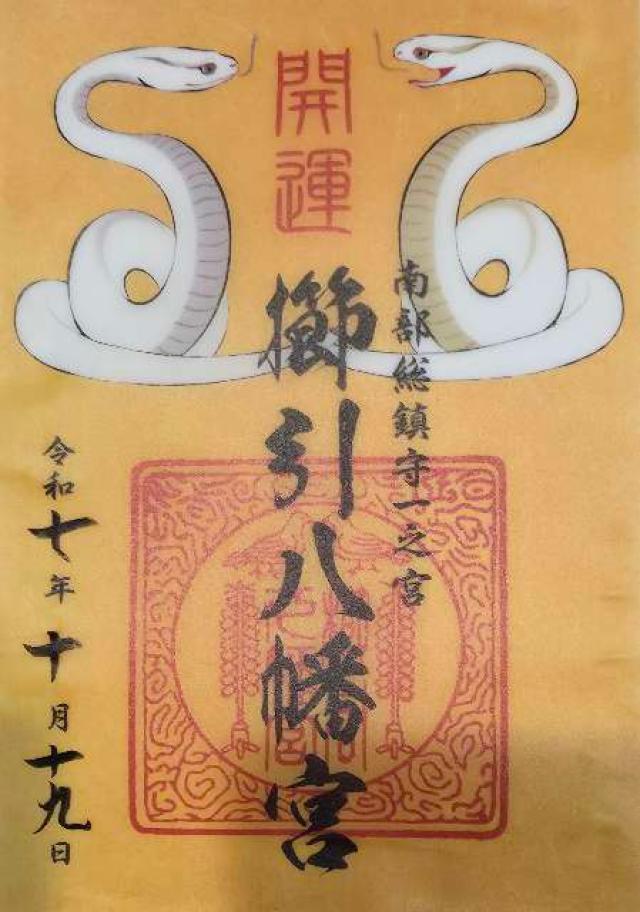 開運
南部総鎮守一之宮
櫛引八幡宮
令和七年十月十九日